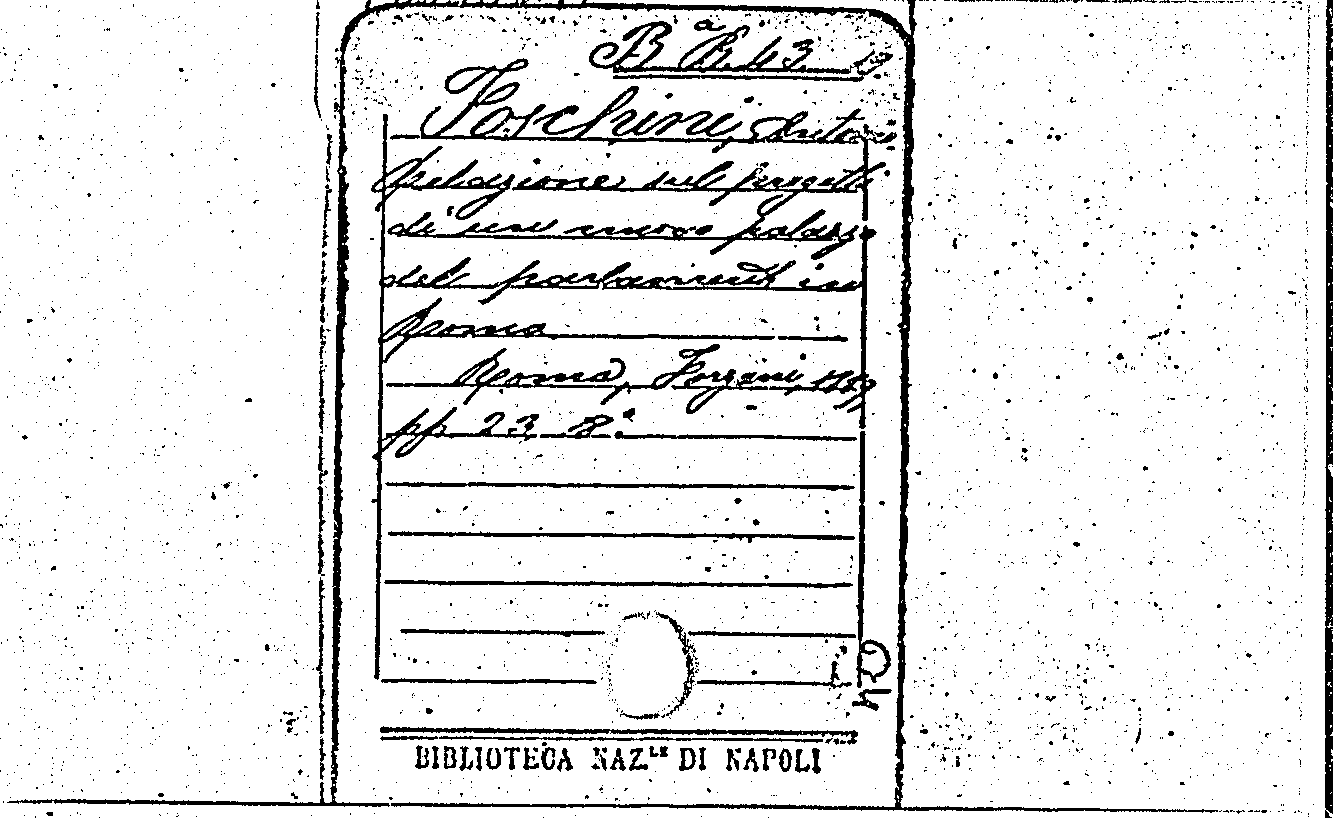 Bª B. 43 19
Foschini, Antonio
Relazione sul progetto
di un nuovo palazzo
del parlamento in
Roma
Roma, Forzani,
pp 23 8.°
BIBLIOTECA NAZ.LE DI NAPOLI